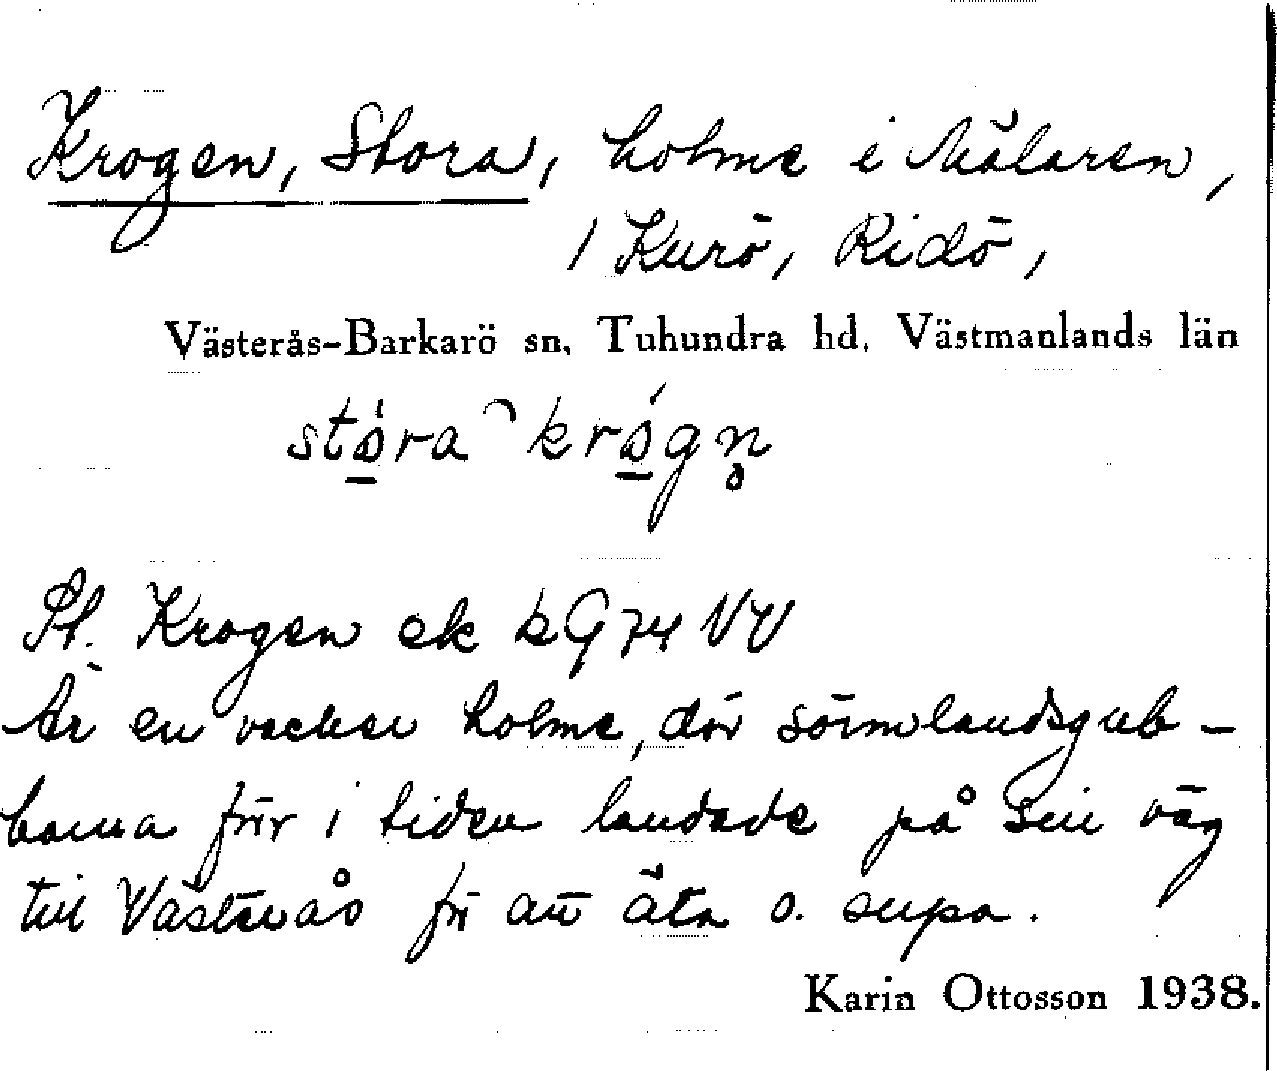 Krogen, Stora, holme i Mälaren,
/ Kurö, Ridö,
Västerås-Barkarö sn, Tuhundra hd, Västmanlands län
stó̠ra kró̠gn̥
St. Krogen ek kG 74 VV
Är en vacker holme, där sörmlandsgub-
barna förr i tiden landade på sin väg
till Västerås för att äta o. supa.
Karin Ottosson 1938.